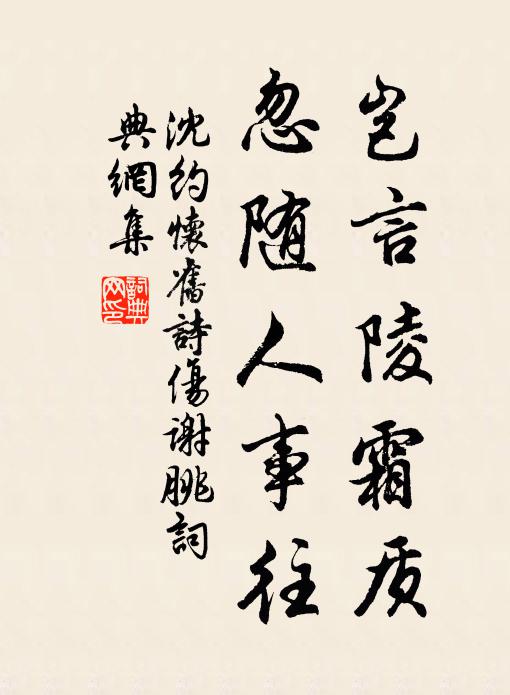 岂言陵霜质
忽随人事往
沈约怀旧诗伤谢朓词
典網集
詞典網印